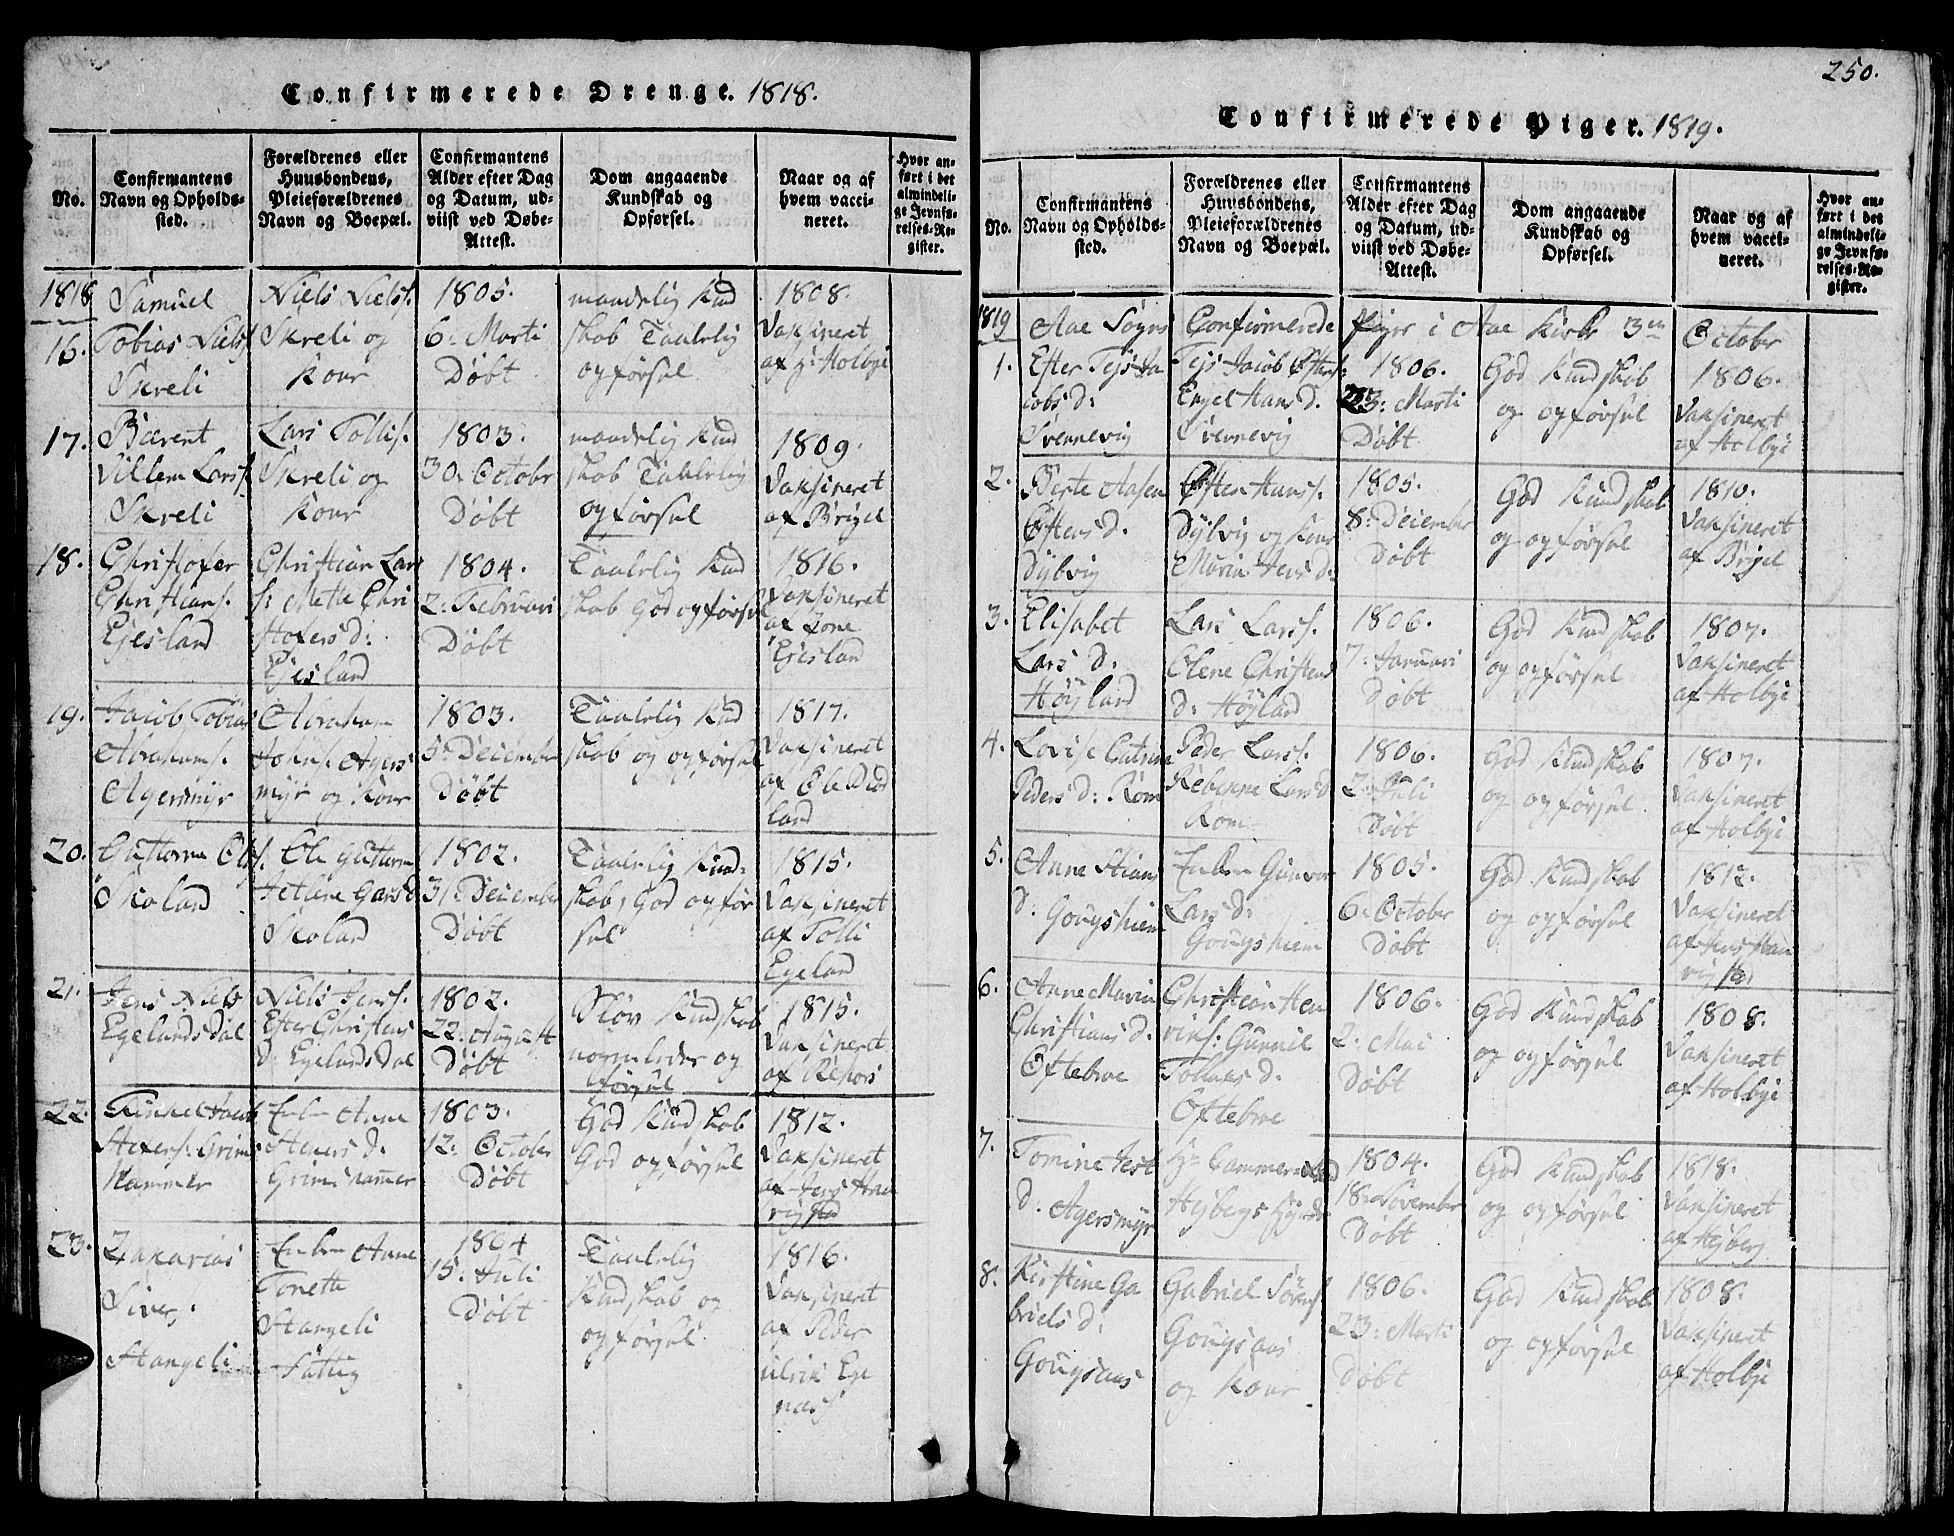 Confirmerede Drenge. 1818.
No.
Confirmantens
Navn og Opholds-
sted.
Forældrenes eller
Huusbondens,
Pleieforældrenes
Navn og Boepæl.
Confirmantens
Alder efter Dag
og Datum, ud-
viist ved Døbe-
Attest.
Dom angaaende
Kundskab og
Opførsel.
Naar og af
hvem vacci-
neret.
Hvor an-
ført i det
almindeli-
ge Jevnfø-
relses-Re-
gister.
1818
16.
Samuel
Tobias Niels f.
Skreli
Niels Niels f.
Skreli og
Kone
1805.
6: Marti
Døbt
maadelig Kund
skab Taalelig
opførsel
1808.
Vaksineret
af H: Holbye
17.
Bærent
Villem Lars f.
Skreli
Lars Tollis f.
Skreli og
Kone
1803.
30. October
Døbt
maadelig Kund
skab Taalelig
opførsel
1809.
Vaksineret
af Brigel
18.
Christofer
Christians f.
Egesland
Christian Lar
s: Mette Chri
stofers d:
Egesland
1804.
2: Februari
Døbt
Taalelig Kund
skab God opførsel
1816.
Vaksineret
af Tone
Egesland
19.
Jacob Tobias
Abrahams f.
Agersmyr
Abraham
Johns f. Agers
myr og Kone
1803.
5: December
Døbt
Taalelig Kund
skab og opførsel
1817.
Vaksineret
af Ole
land
20.
Guttorm Ols f.
Skoland
Ole Guttorm
Lars d
Skoland
1802.
31. December
Døbt
Taalelig Kund-
skab, God opfør
sel
1815.
Vaksineret
af Tolli
Egeland
21.
Jens Niels
Egelands Dal
Niels Jens f.
Efter Christens
d: Egelands Dal
1802.
22. August
Døbt
Sløv Kundskab
og
opførsel
1815.
Vaksineret
af
22.
Stefens f. Grims
Hammer
Enken Anne
Steners d.
Grimshammer
1803.
12: October
Døbt
God Kundskab
God opførsel
1812.
Vaksineret
af Jens Han
vig
23.
Zakarias
Sivers f.
Stangeli
Enken Anne
Tonette
Stangeli
Fattig
1804
15. Juli
Døbt
Taalelig
Kundskab og
opførsel
1816.
Vaksineret
af Peder
Ulrik Ege
næs
250.
Confirmerede Piger. 1819.
No.
Confirmantens
Navn og Opholds-
sted.
Forældrenes eller
Huusbondens,
Pleieforældrenes
Navn og Boepæl.
Confirmantens
Alder efter Dag
og Datum, ud-
viist ved Døbe-
Attest.
Dom angaaende
Kundskab og
Opførsel.
Naar og af
hvem vacci-
neret.
Hvor an-
ført i det
almindeli-
ge Jevnfø-
relses-Re-
gister.
1819
Aae Sogns Confirmerede Piger i Aae Kirke 3die October
1.
Efter Tejs Ja
cobs d:
Svennevig
Tejs Jacob Osters f:
Engel Hans d.
Svennevig
1806.
23: Marti
Døbt
God Kundskab
og opførsel
1806.
Vaksineret
af Holbye
2.
Berte Aasen
Ostens d.
Dybvig
Osten Hans f.
Dybvig og Kone
Maria Jens d:
1805.
8: December
Døbt
God Kundskab
og opførsel
1810.
Vaksineret
af Brigel
3.
Elisabet
Lars d.
Høyland
Lars Lars f.
Olene Christens
d: Høyland
1806.
7: Januari
Døbt
God Kundskab
og opførsel
1807.
Vaksineret
af Holbye
4.
Lovise Catrine
Peders d: Rom
Peder Lars f.
Rebenne Lars d
Rom
1806.
2: Juli
Døbt
God Kundskab
og opførsel
1807.
Vaksineret
af Holbye
5.
Anne Stians
d: Gougshiem
Enken Gunvor
Lars d:
Gougshiem
1805.
6: October
Døbt
God Kundskab
og opførsel
1812.
Vaksineret
af Jens Han
vig
6.
Anne Maria
Christians d.
Oftebroe
Christian Hen
rins f: Gunnil
Tolnes d.
Oftebroe
1806.
2. Mai
Døbt
God Kundskab
og opførsel
1808.
Vaksineret
af Holbye
7.
Tomine Jest
d: Agersmyr
Hr Cammerraad
Hejbergs
1804.
18. November
Døbt
God Kundskab
og opførsel
1818.
Vaksineret
af Hejberg
8.
Kirstine Ga
briels d.
Gougsaas
Gabriel Sørens f
Gougsaas
og Kone
1806.
23: Marti
Døbt
God Kundskab
og opførsel
1808.
Vaksineret
af Holbye